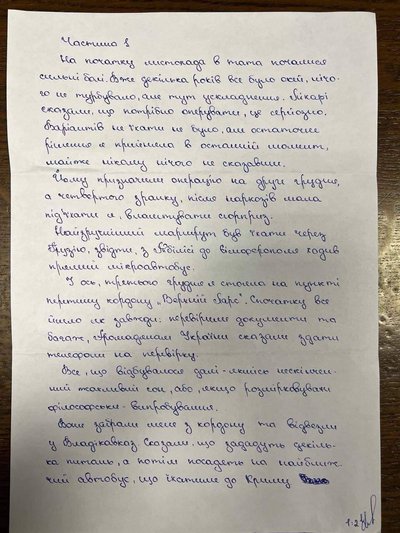 Частина 1
На початку листопада в тата почалися
сильні болі. Вже декілька років все було окей, нічо-
го не турбувало, але тут ускладнення. Лікарі
сказали, що потрібно оперувати, це серйозно.
Варіантів не їхати не було, але остаточне
рішення я прийняла в останній момент,
майже нікому нічого не сказавши.
Йому призначили операцію на друге грудня,
а четвертого зранку, після наркозів мала
під'їхати я, влаштувати сюрприз.
Найзручніший маршрут був їхати через
Грузію, звідти, з Тбілісі до Сімферополя ходив
прямий мікроавтобус.
І ось, третього грудня я стояла на пункті
перетину кордону "Верхній Ларс". Спочатку все
йшло як завжди: перевірили документи та
багаж, громадянам України сказали здати
телефони на перевірку.
Все, що відбувалося далі - якийсь нескінчен-
ний жахливий сон, або, якщо розмірковувати
філософськи - випробування.
Вони забрали мене з кордону та відвезли
у Владікавказ. Сказали, що зададуть декіль-
ка питань, а потім посадять на найближ-
чий автобус, що їхатиме до Криму